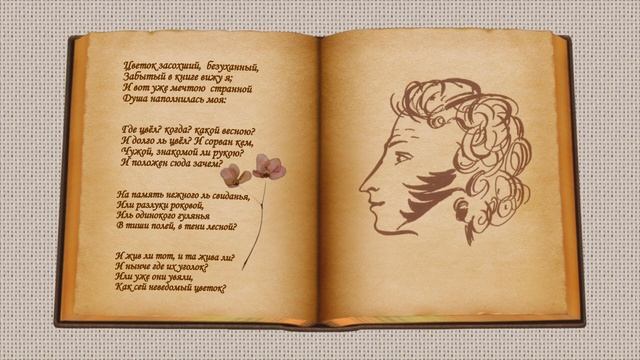 Цветок засохший, безуханный,
Забытый в книге вижу я;
И вот уже мечтою странной
Душа наполнилась моя:
Где цвёл? когда? какой весною?
И долго ль цвёл? И сорван кем,
Чужой, знакомой ли рукою?
И положен сюда зачем?
На память нежного ль свиданья,
Или разлуки роковой,
Иль одинокого гулянья
В тиши полей, в тени лесной?
И жив ли тот, и та жива ли?
И нынче где их уголок?
Или уже они увяли,
Как сей неведомый цветок?